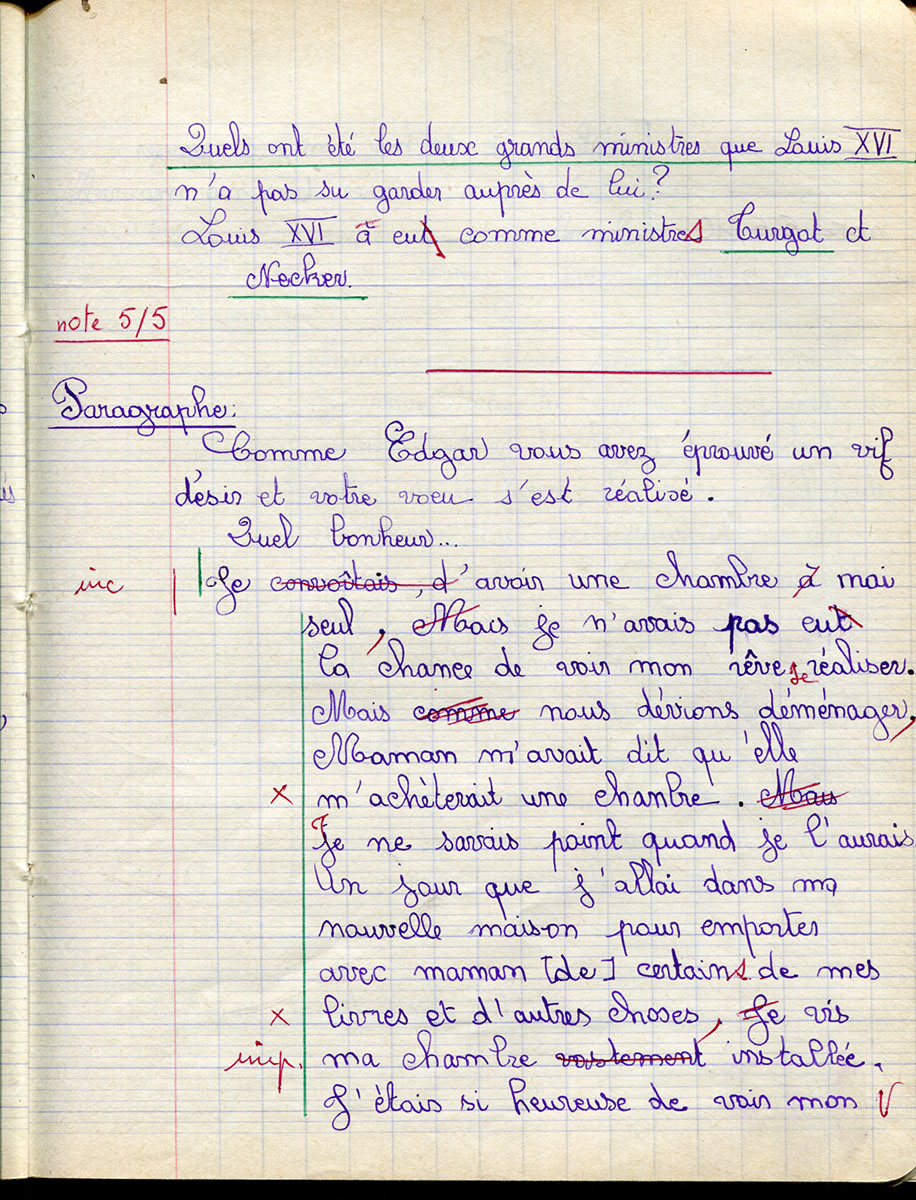 Quels ont été les deux grands ministres que Louis XVI
n'a pas su garder auprès de lui?
Louis XVI à eut comme ministres Turgot et
Necker.
note 5/5
Paragraphe:
Comme Edgar vous avez éprouvé un vif
désir et votre voeu s'est réalisé.
Quel bonheur...
inc Je convoîtais, d'avoir une chambre à moi
seul, Mais je n'avais pas eut
la chance de voir mon rêve se réaliser.
Mais comme nous dévions déménager,
Maman m'avait dit qu'elle
x m'achèterait une chambre. Mais
Je ne savais point quand je l'aurais
Un jour que j'allai dans ma
nouvelle maison pour emporter
avec maman [de] certains de mes
x livres et d'autres choses, Je vis
imp. ma chambre installée.
J'étais si heureuse de voir mon V